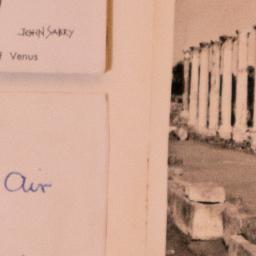 JOHN SABRY
f Venus
Air